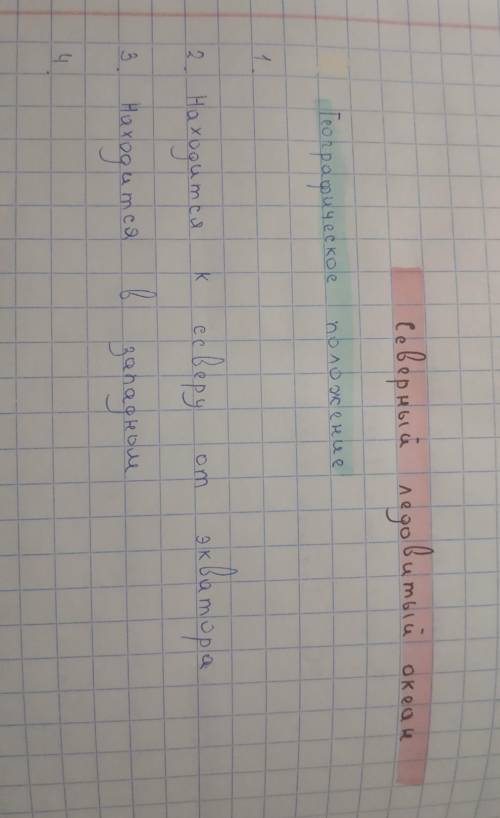 Северный ледовитый океан
Географическое положение
1.
2. Находится к северу от экватора
3. Находится в западном
4.